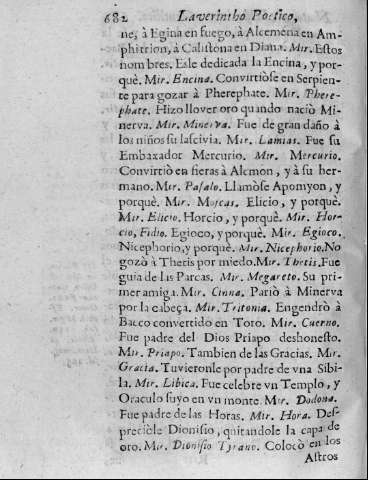 682 Laverintho Poetico,
ne, à Egina en fuego, à Alcemena en Am-
phitrion, à Calistona en Diana. Mir. Estos
nombres. Esle dedicada la Encina, y por-
què. Mir. Encina. Convirtiòse en Serpien-
te para gozar à Pherephate. Mir. Phere-
phate. Hizo llover oro quando naciò Mi-
nerva. Mir. Minerva. Fue de gran daño à
los niños su lascivia. Mir. Lamias. Fue su
Embaxador Mercurio. Mir. Mercurio.
Convirtiò en fieras à Alcmon, y à su her-
mano. Mir. Pasalo. Llamòse Apomyon, y
porquè. Mir. Moscas. Elicio, y porquè.
Mir. Elicio. Horcio, y porquè. Mir. Hor-
cio, Fidio. Egioco, y porquè. Mir. Egioco.
Nicephorio, y porquè. Mir. Nicephorio. No
gozò à Thetis por miedo. Mir. Thetis. Fue
guia de las Parcas. Mir. Megareto. Su pri-
mer amiga. Mir. Cinna. Pariò à Minerva
por la cabeça. Mir. Tritonia. Engendrò à
Bacco convertido en Toro. Mir. Cuerno.
Fue padre del Dios Priapo deshonesto.
Mir. Priapo. Tambien de las Gracias. Mir.
Gracia. Tuvieronle por padre de vna Sibi-
la. Mir. Libica. Fue celebre vn Templo, y
Oraculo suyo en vn monte. Mir. Dodona.
Fue padre de las Horas. Mir. Hora. Des-
preciòle Dionisio, quitandole la capa de
oro. Mir. Dionisio Tyrano. Colocò en los
Astros